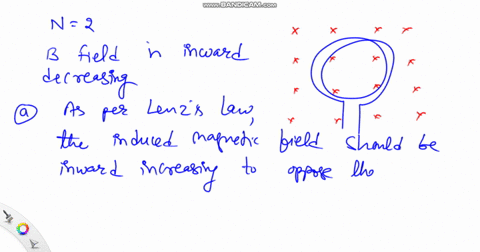 WWW.BANDICAM.COM
N = 2
B field in inward
decreasing
(a) As per Lenz's Law,
the induced magnetic field should be
inward increasing to oppose the